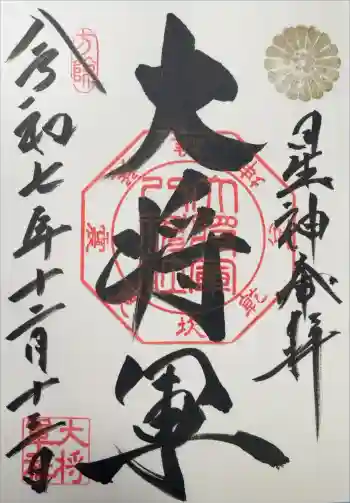 星神奉拝
大将軍
令和七年十二月十三日
方除
大将
坎